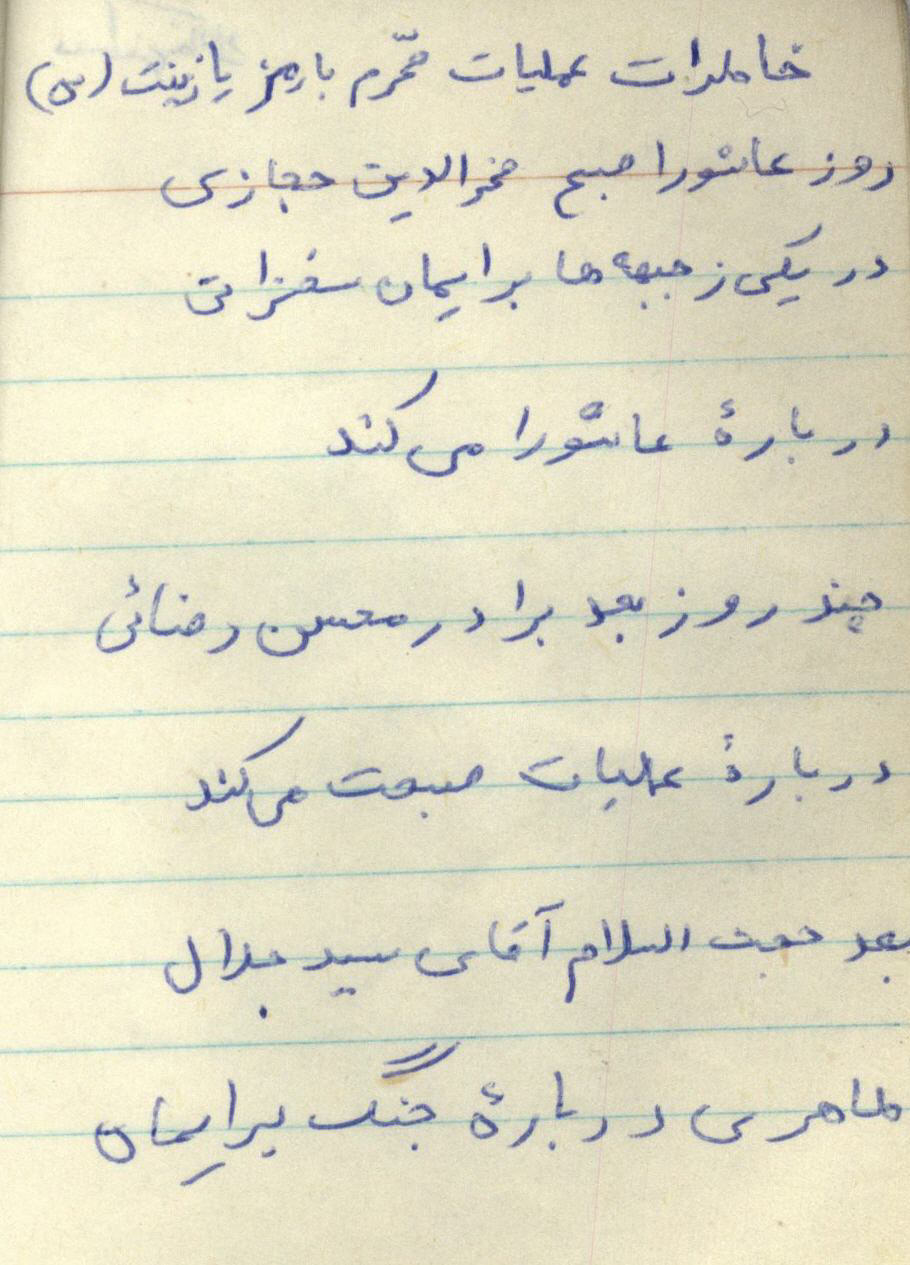 خاطرات عملیات محرّم با رمز یا زینت (س)
روز عاشورا صبح فخرالدین حجازی
در یکی ز جبهه ها برایمان سخنرانی
دربارهٔ عاشورا می کند
چند روز بعد برادر محسن رضائی
دربارهٔ عملیات صبحت می کند
بعد حجت السلام آقای سید جلال
طاهری دربارهٔ جنگ برایمان